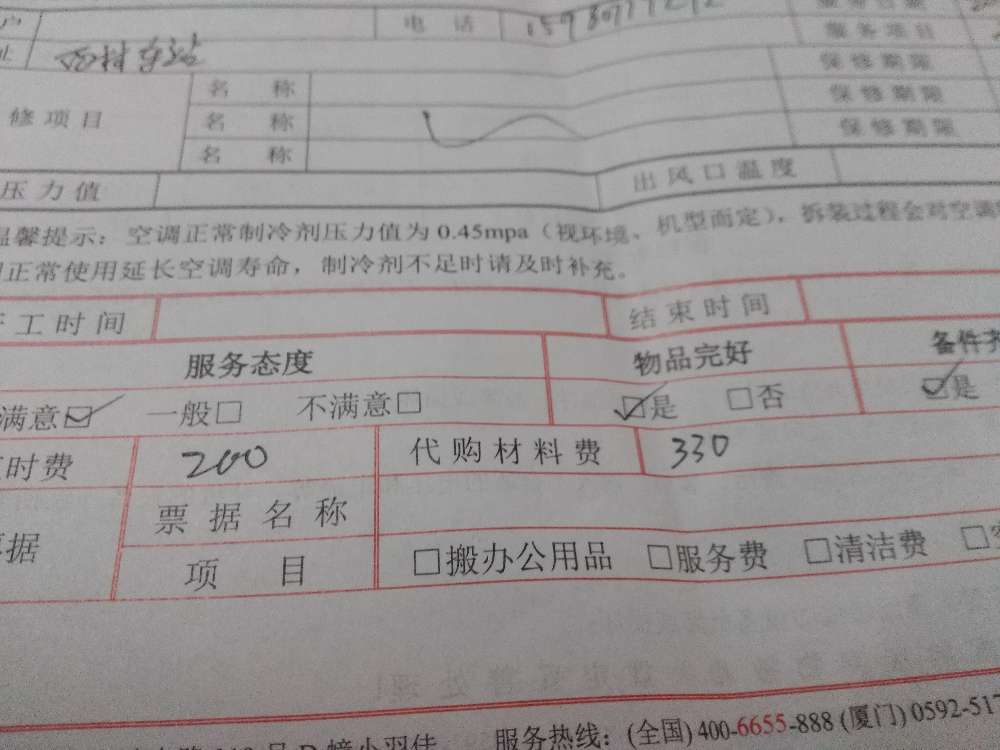 户 电 话
址 西村车站 服务项目
名 称 保修期限
修项目 名 称 保修期限
名 称 保修期限
压力值 出风口温度
温馨提示：空调正常制冷剂压力值为 0.45mpa（视环境、机型而定），拆装过程会对空调
正常使用延长空调寿命，制冷剂不足时请及时补充。
工时间 结束时间
服务态度 物品完好 备件齐
满意☑ 一般□ 不满意□ ☑是 □否 ☑是
时费 200 代购材料费 330
票据名称
据 项 目 □搬办公用品 □服务费 □清洁费
服务热线：(全国) 400-6655-888 (厦门) 0592-517